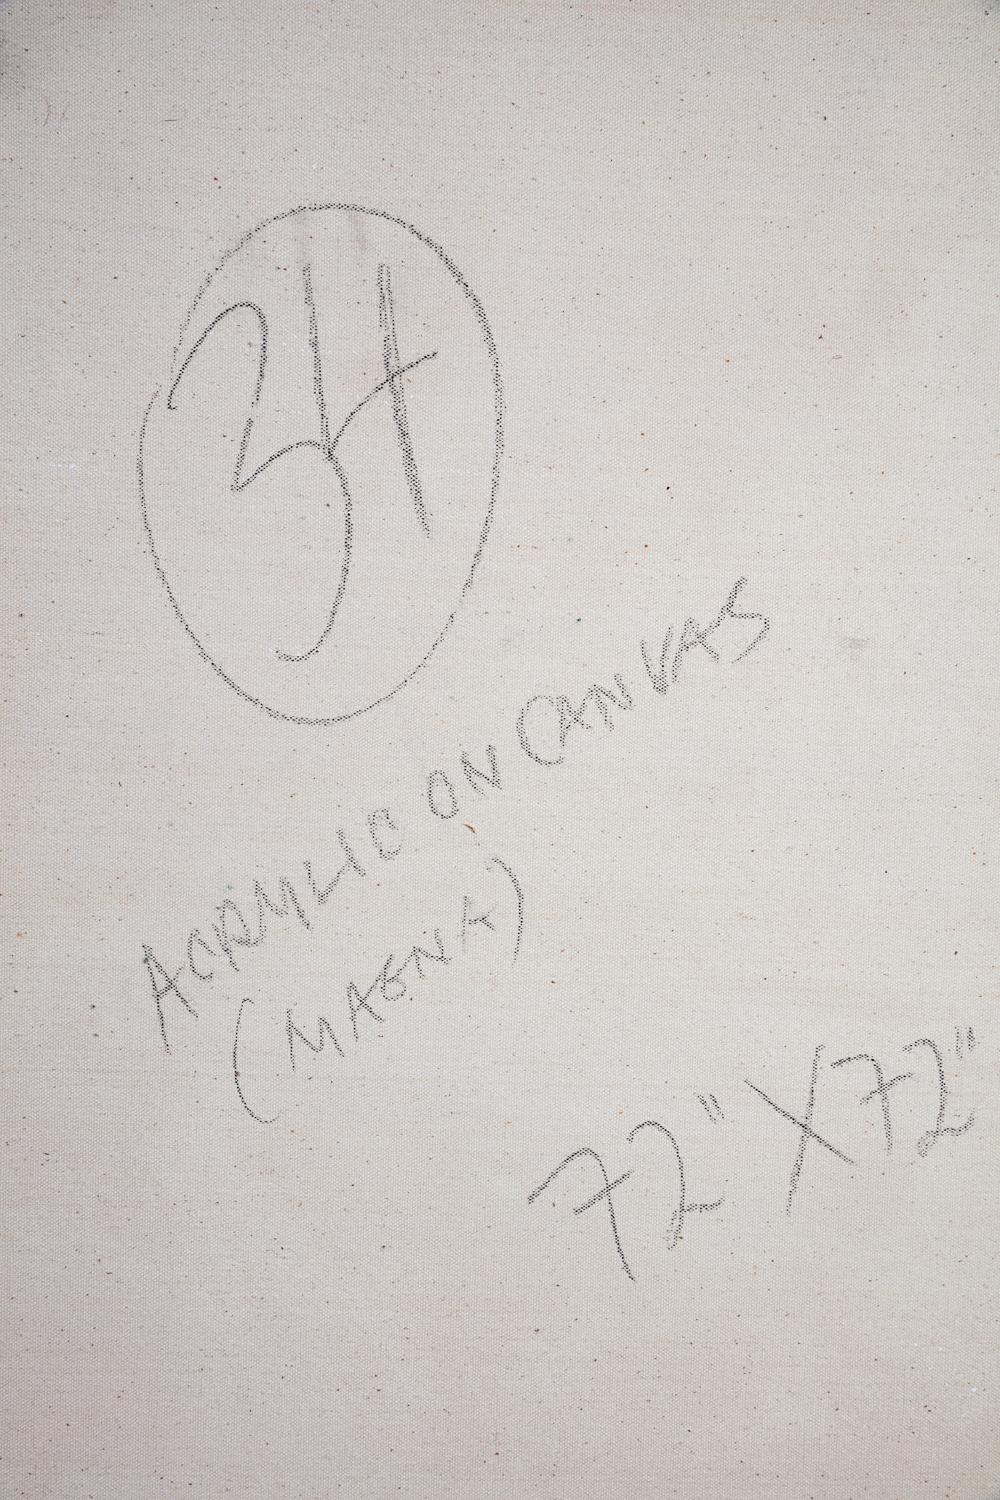 34
ACRYLIC ON CANVAS
(MAGNA)
72" X 72"